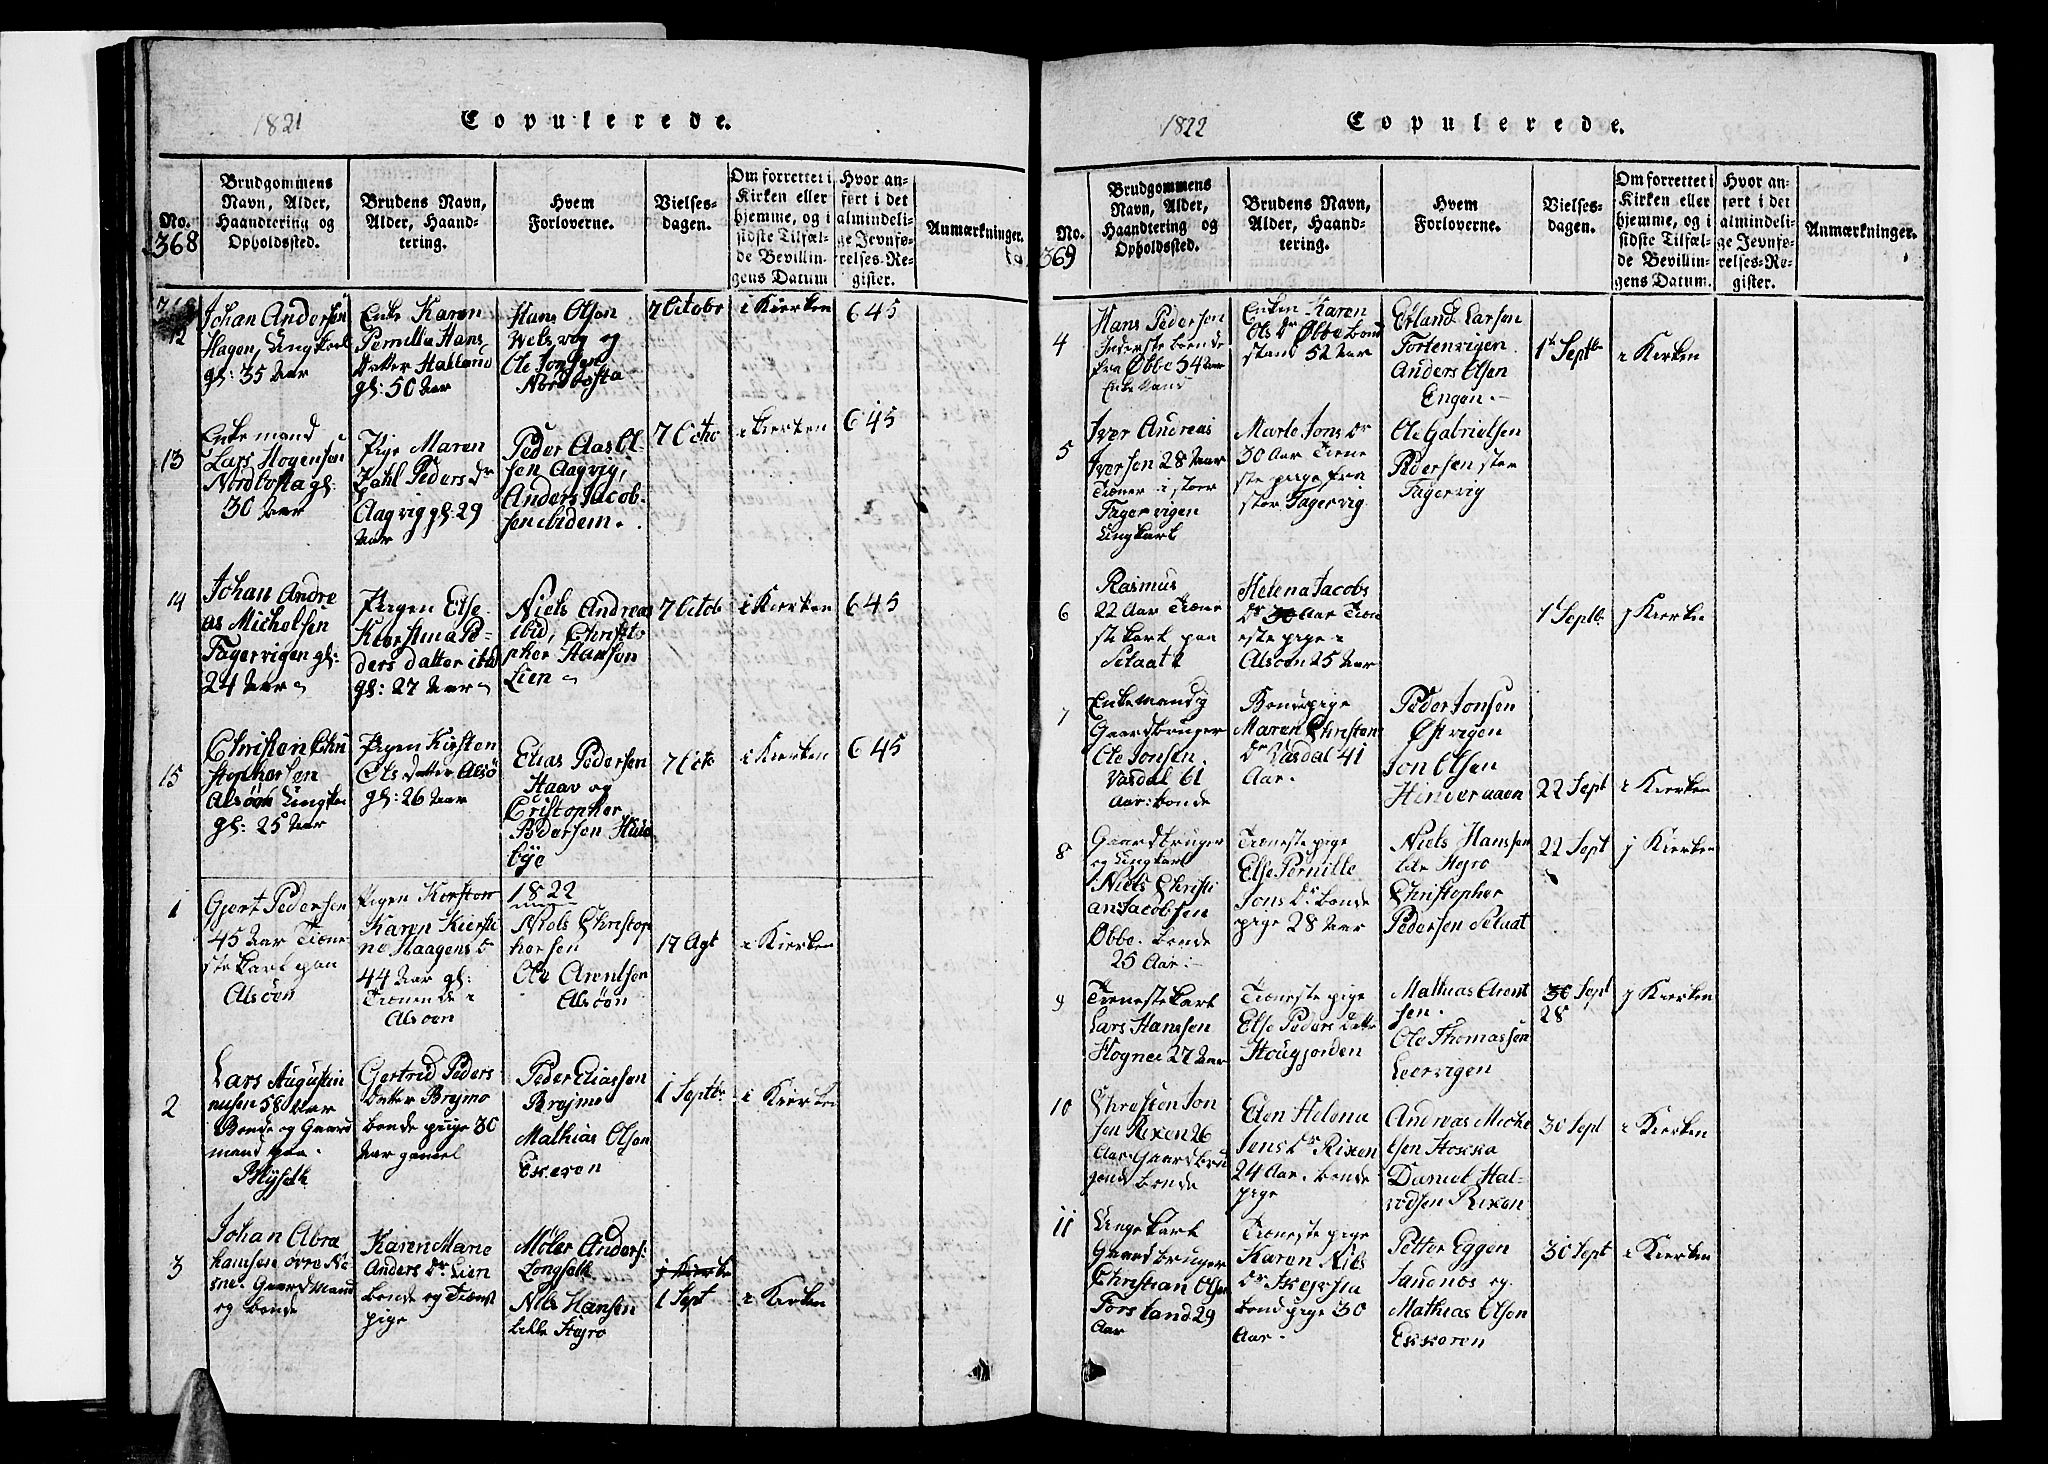 1821
Copulerede.
No.
368
Brudgommens
Navn, Alder,
Haandtering og
Opholdssted.
Brudens Navn,
Alder, Haand-
tering.
Hvem
Forloverne.
Vielses-
dagen.
Om forrettet i
Kirken eller
hjemme, og i
sidste Tilfæl-
de Bevillin-
gens Datum
Hvor an-
ført i det
almindeli-
ge Jevnfø-
relses-Re-
gister.
Anmærkninger.
12
Johan Andersen
Hagen, Ungkarl
gl: 35 Aar
Enke Karen
Pernilla Hans
datter Halland
gl: 50 Aar
Hans Olson
Welsvig og
Ole Jonsen
Nordbosta
7 Octobr
i Kierken
645
13
Enkemand
Lars Mogensen
Nordbosta gl:
30 Aar
Pige Maren
Dahl Peders Dr
Aagvig gl: 29
Aar
Peder Aas Ol
sen Aagvig,
Anders Jacob-
sen ibidem.
7 Octo
i Kierken
645
14
Johan Andre
as Michelsen
Fagervigen gl:
24 Aar
Pigen Else
Kierstina Pe-
ders datter ibd
gl: 27 Aar
Niels Andreas
ibid, Christo
pher Hanson
Lien
7 Octob
i Kierken
645
15
Christen Chri
stophersen
Alsøen Ungka
gl: 25 Aar
Pigen Kirsten
Ols datter Alsø
gl: 26 Aar
Elias Pedersen
Haav og
Cristopher
Pedersen Huus
bye
7 Octo
i Kierken
645
1822
1
Gjert Pedersen
45 Aar Tiene
stekarl paa
Alsöen
Pigen Kersten
Karen Kiersti
ne Haagens Dr
44 Aar gl:
Tienende i
Alsoen
Niels Christop
hersen
Ole Arentsen
Alsöen
17 Agt
i Kierken
2
Lars Augustin
nusen 58 Aar
Bonde og Gaard
mand paa
Gertrid Peders
datter Brejmo
bonde pige 30
Aar gamel
Peder Eliassen
Brejmo
Mathias Olsen
Exeren
1 Septbr
i Kierken
3
Johan Abra
hamsen övre Næ
sne. Gaardmand
og bonde
Karen Marie
Anders Dr Lien
bonde og Tienst
pige
Møler Anders:
Longseth
Nils Hansen
lille Hejro
j Kierke
1 Sept
i Kierken
1822
Copulerede.
No.
369
Brudgommens
Navn, Alder,
Haandtering og
Opholdssted.
Brudens Navn,
Alder, Haand-
tering.
Hvem
Forloverne.
Vielses-
dagen.
Om forrettet i
Kirken eller
hjemme, og i
sidste Tilfæl-
de Bevillin-
gens Datum.
Hvor an-
ført i det
almindeli-
ge Jevnfø-
relses-Re-
gister.
Anmærkninger.
4
Hans Pedersen
Inderste bonde
fra Øbbe 54 Aar
Enke Mand
Enken Karen
Ols Dr Øbbe bond
stand 52 Aar
Erland Larsen
Tortenvigen
Anders Olsen
Engen.
1t Septbr
i Kierken
5
Iver Andreas
Iversen 28 Aar
Tiener i stoer
Fagervigen
Ungkarl
Marte Jons Dr
30 Aar Tiene
ste pige fra
stor Fagervig
Ole Gabrielsen
Pedersen stor
Fagervig
6
Rasmus
22 Aar Tiene
stekarl paa
Helena Jacobs
Dr 30 Aar Tien
este pige i
Alsoen 25 Aar
1t Septbr
j Kierken
7
Enkemand og
Gaardbruger
Ole Jonsen
Vasdal 61
Aar: bonde
Bondepige
Maren Christens
Dr Vasdal 41
Aar.
Peder Jonsen
Østvigen
Jon Olsen
Hinderaaen
22 Sept
i Kierken
8
Gaardbruger
og Ungkarl
Niels Christi
an Jacobsen
Øbbe. bonde
25 Aar:
Tieneste pige
Else Pernille
Jons Dr. bonde
pige 28 Aar
Niels Hanssen
lile Hejro
Christopher
Pedersen Selaat
22 Sept
j Kierken
9
Tienestekarl
Lars Hanssen
Hognes 27 Aar
Tieneste pige
Else Peders datte
Hougjorden
Mathias Arent
sen.
Ole Thomassen
Leervigen
30 Sept
28
j Kierken
10
Christen Jon
sen Rixen 26
Aar. Gaardbru
gend bonde
Elen Helena
Jens Dr Rixen
24 Aar. bonde
pige
Andreas Miche
lsen Hoxxa
Daniel Hal-
vodsen Rixen
30 Sept
i Kierken
11
Ungekarl
Gaardbruger
Christian Olsen
Forsland 29
Aar
Tieneste pige
Karen Nils
Dr Skejesia
bond pige 30
Aar.
Petter Eggen
Sandnes og
Mathias Olsen
Exxeren
30 Sept
i Kierken